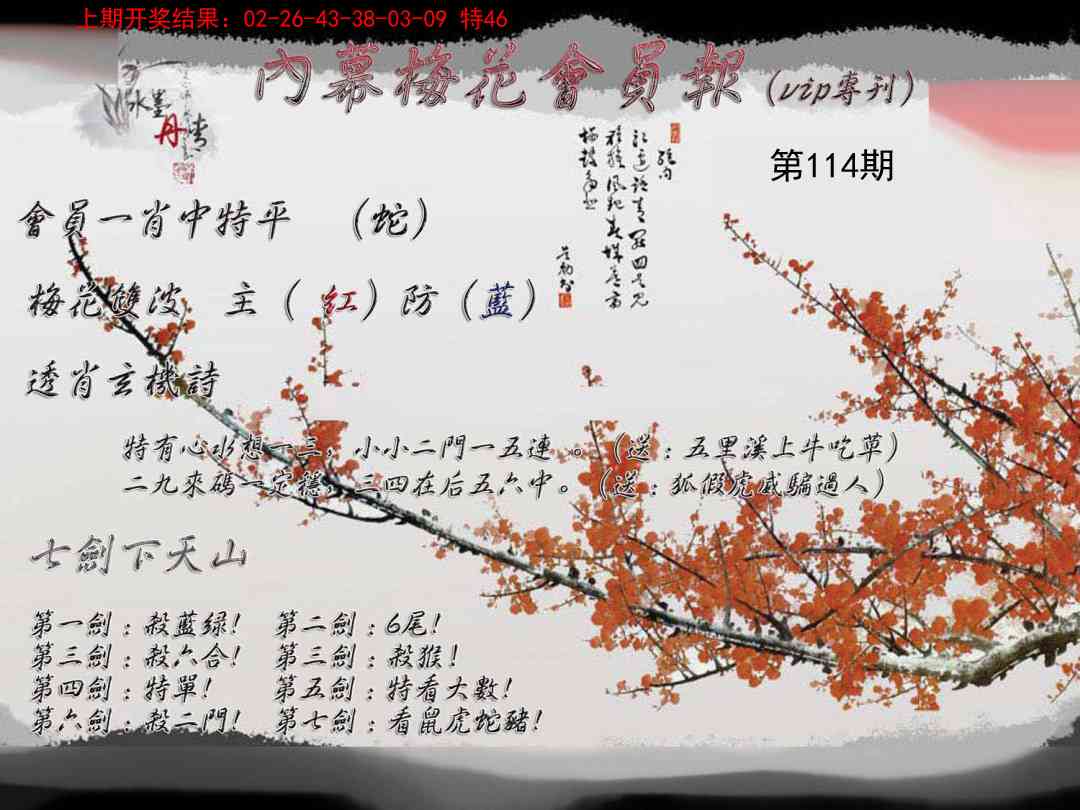 上期开奖结果：02-26-43-38-03-09 特46
內幕梅花會員報（vip專刊）
水墨
丹青
第114期
會員一肖中特平　（蛇）
梅花雙波　主（紅）防（藍）
透肖玄機詩
特有心水想一三，小小二門一五連。（送：五里溪上牛吃草）
二九來碼一定穩，三四在后五六中。（送：狐假虎威騙過人）
七劍下天山
第一劍：殺藍绿！　第二劍：6尾！
第三劍：殺六合！　第三劍：殺猴！
第四劍：特單！　第五劍：特看大數！
第六劍：殺二門！　第七劍：看鼠虎蛇豬！